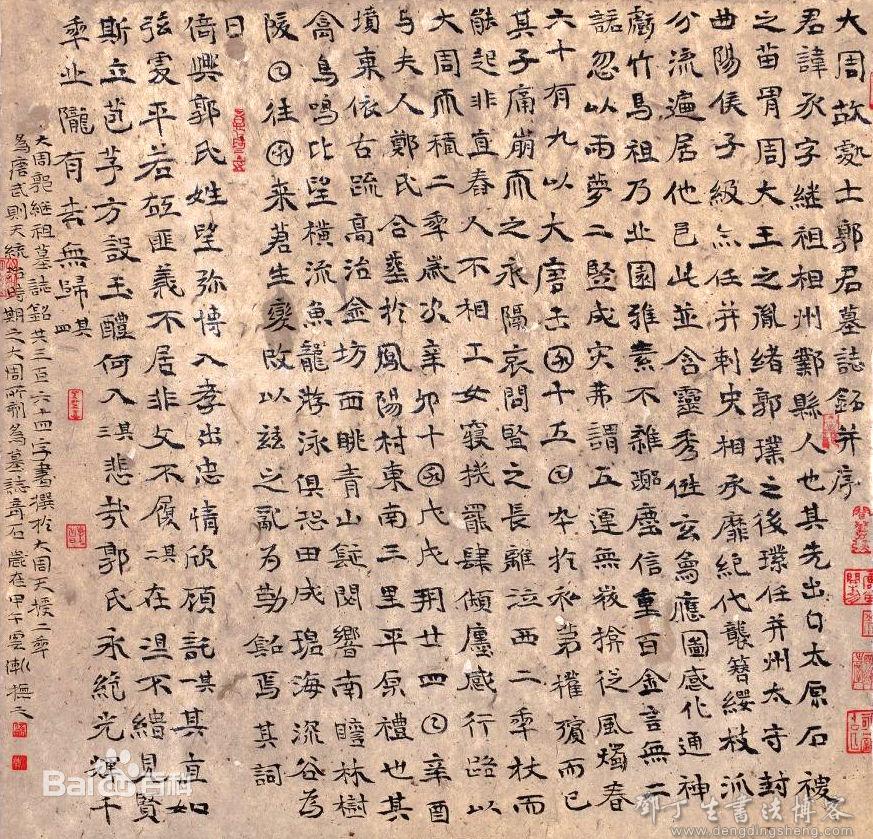 大周故處士郭君墓誌銘并序
君諱承字継祖相州鄴縣人也其先出自太原石被
之苗胃周大王之胤緒郭璞之後璞任并州太守封
曲陽侯子級亦任并刺史相承靡絕代襲簪纓枝派
分流遍居他邑此並含靈秀玄象應圖感化通神
戲竹馬祖乃丘園雅素不雜塵信重百金言無二
諾忽以兩夢二豎成灾弗謂五運無従風燭春
六十有九以大唐十五卒於私第權殯而已
其子痛崩而之永隔哀問竪之長離泣西二年杖而
能起非直舂人不相工女寢機罷肆傾廛感行路以
大周而積二年歲次辛卯十戊戌朔廿四辛酉
与夫人鄭氏合葬於鳳陽村東南三里平原禮也其
墳東依古疏高治金坊西眺青山聞響南瞻林樹
禽鳥鳴北望横流魚龍游泳俱恐田成海深谷為
陵往来蒼生變改以兹之亂為勒銘焉其詞
曰
倚興郭氏姓望弥博入孝出忠情欣頋託其一其直如
弦平若匪義不居非文不履其二在涅不緇見賢
斯立苞茅方設玉醴何入其三悲哉郭氏永絶光輝千
年丘隴有去無歸其四
大周郭継祖墓誌銘共三百六十四字書撰於大周天授二年
為唐武則天統治時期之大周所刻為墓誌奇石 歲在甲午雲撫之
Bai百科
鄧丁生書法博客
www.dengdingsheng.com